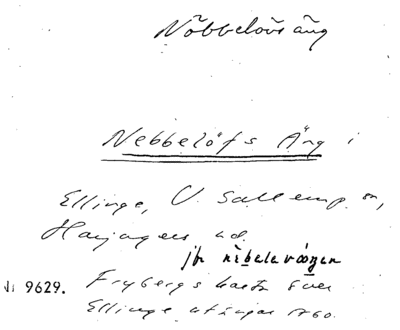 Nöbbelövs äng
Nebbelöfs Äng i
Ellinge, V. Sallerup sn,
Harjagers hd.
jfr
N: 9629. Frybergs karta över
Ellinge utängar 1760.